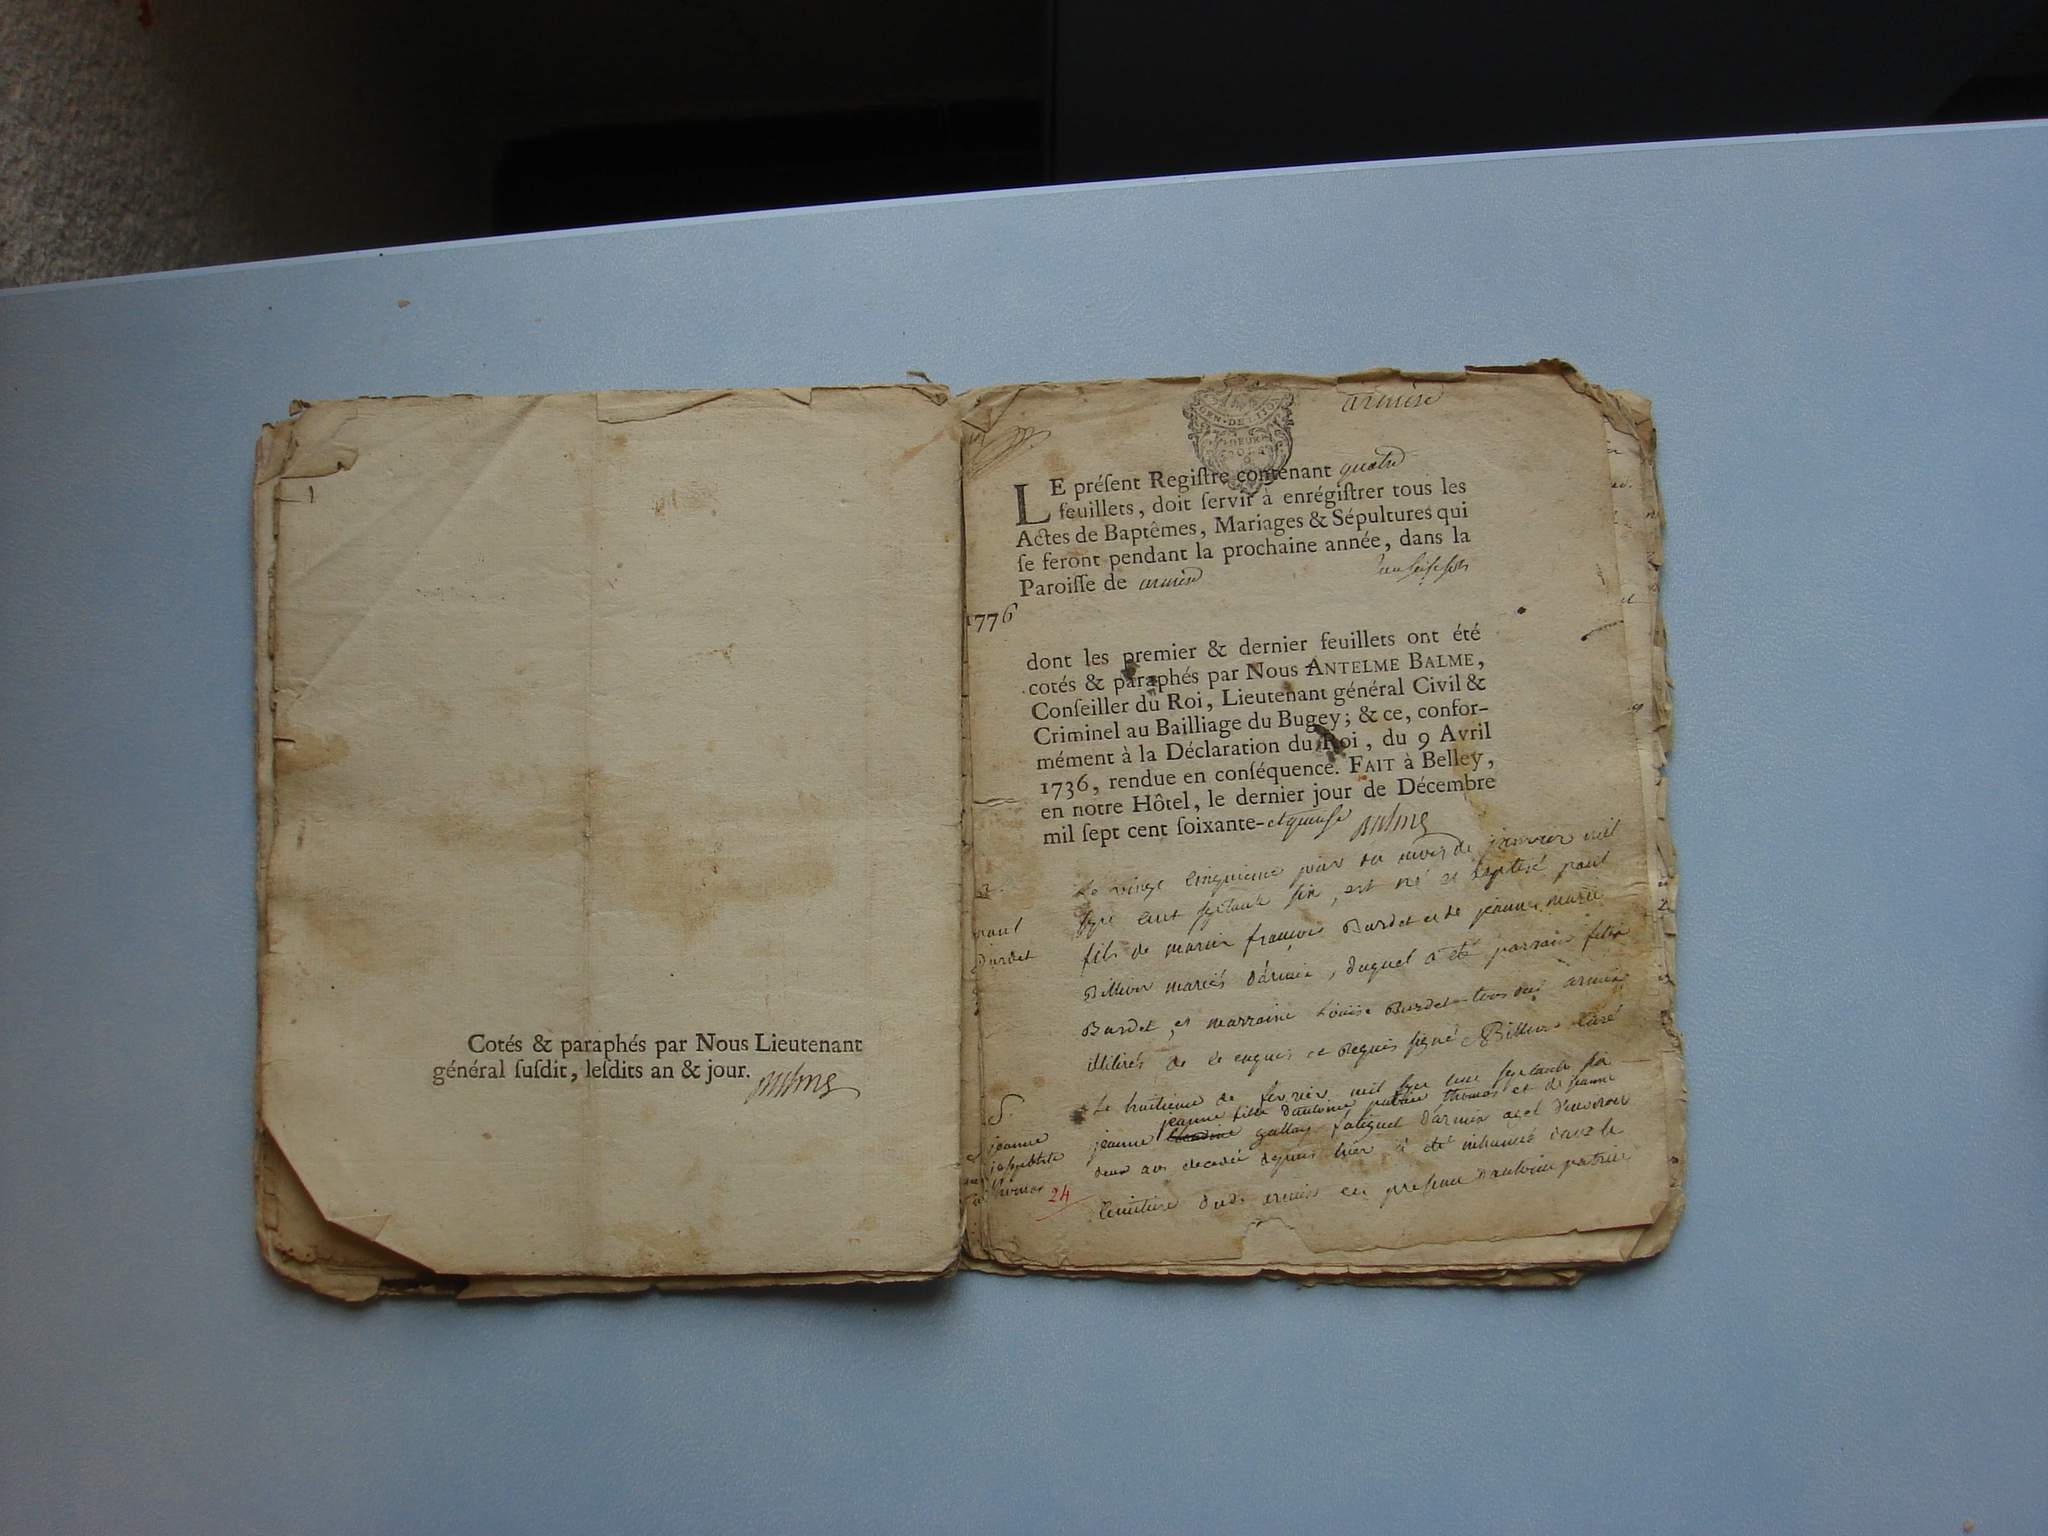 Cotés & paraphés par Nous Lieutenant
général ſuſdit, leſdits an & jour. Balme
armix
GEN·DE·LYO
LE préſent Regiſtre contenant quatre
feuillets, doit ſervir à enrégiſtrer tous les
Actes de Baptêmes, Mariages & Sépultures qui
ſe feront pendant la prochaine année, dans la
Paroiſſe de armix
1776
dont les premier & dernier feuillets ont été
cotés & paraphés par Nous ANTELME BALME,
Conſeiller du Roi, Lieutenant général Civil &
Criminel au Bailliage du Bugey; & ce, confor-
mément à la Déclaration du Roi, du 9 Avril
1736, rendue en conſéquence. FAIT à Belley,
en notre Hôtel, le dernier jour de Décembre
mil ſept cent ſoixante-et quinze Balme
Le vingt cinquieme jour du mois de janvier mil
ſept cent ſeptante ſix, est né et baptisé paul
paul
Burdet
fils de marin françois Burdet et de jeanne marie
Billion mariés d'armix, duquel a été parrain felix
Burdet, et marraine Louise Burdet tous dud armix
illitérés de ce enquis et requis ſigné Billion curé
S.
Le huitieme de fevrier mil ſept cent ſeptante ſix
jeanne fille d'antoine thomas et de jeanne
jeanne
thomas
24
jeanne gallay d'armix aget d'environ
deux ans decedée depuis hier a été inhumée dans le
Cimitiere dud. armix en presence d'antoine